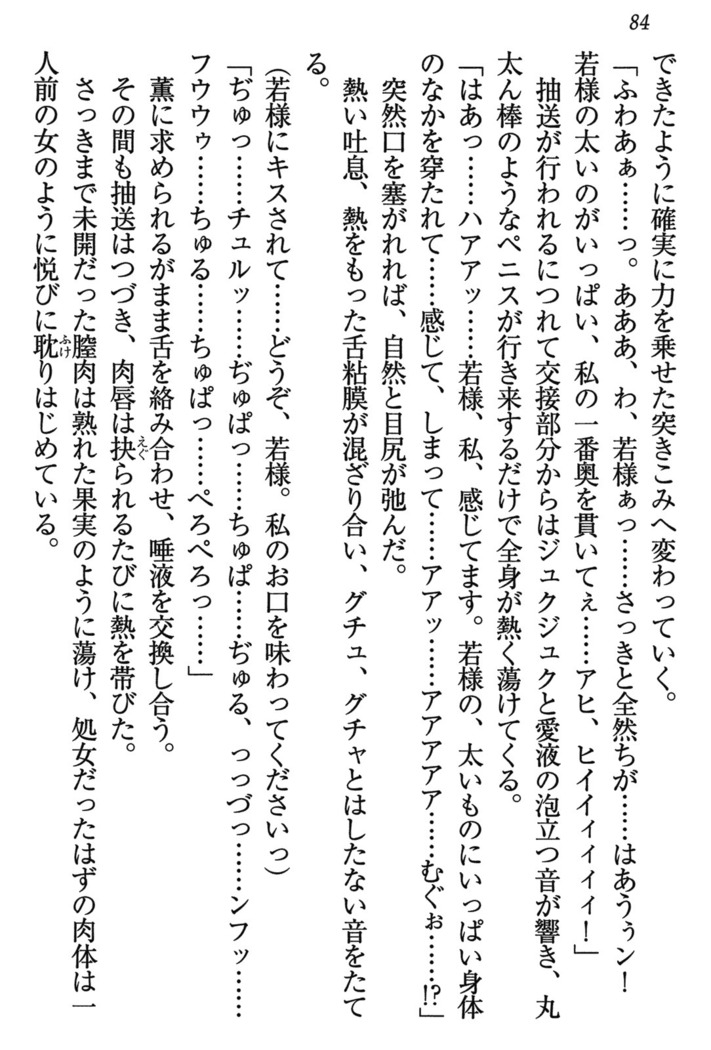 84
できたように確実に力を乗せた突きこみへ変わっていく。
「ふわあぁ……っ。あああ、わ、若様ぁっ……さっきと全然ちが……はあうぅン！
若様の太いのがいっぱい、私の一番奥を貫いてぇ……アヒ、ヒイイィィィィ！」
　抽送が行われるにつれて交接部分からはジュクジュクと愛液の泡立つ音が響き、丸
太ん棒のようなペニスが行き来するだけで全身が熱く蕩けてくる。
「はあっ……ハアアッ……若様、私、感じてます。若様の、太いものにいっぱい身体
のなかを穿たれて……感じて、しまって……アアッ……アアアアア……むぐぉ……!?」
　突然口を塞がれれば、自然と目尻が弛んだ。
　熱い吐息、熱をもった舌粘膜が混ざり合い、グチュ、グチャとはしたない音をたて
る。
（若様にキスされて……どうぞ、若様。私のお口を味わってくださいっ）
「ぢゅっ……チュルッ……ぢゅぱっ……ちゅぱ……ぢゅる、っっづっ……ンフッ……
フウウゥ……ちゅる……ちゅぱっ……ぺろぺろっ……」
　薫に求められるがまま舌を絡み合わせ、唾液を交換し合う。
　その間も抽送はつづき、肉唇は抉られるたびに熱を帯びた。
　さっきまで未開だった膣肉は熟れた果実のように蕩け、処女だったはずの肉体は一
人前の女のように悦びに耽りはじめている。